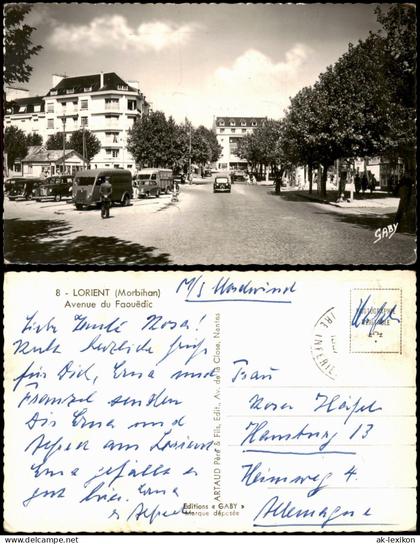 GABY
8 - LORIENT (Morbihan)
Avenue du Faouëdic
M/S Nordwind
Liebe Tante Rosa!
Recht herzliche Grüße
für Dich, Erna und
senden
Dir Erna und
Alfred aus Lorient
Erna gefällt es
gut hier. Erna
+ Alfred
ARTAUD Père & Fils, Edit., Av. de la Close, Nantes
Editions « GABY »
Marque déposée
PHOTOGRAPHIE
VÉRITABLE
Frau
Rosa
Hamburg 13
Heimweg 4
Allemagne
ak-lexikon.com